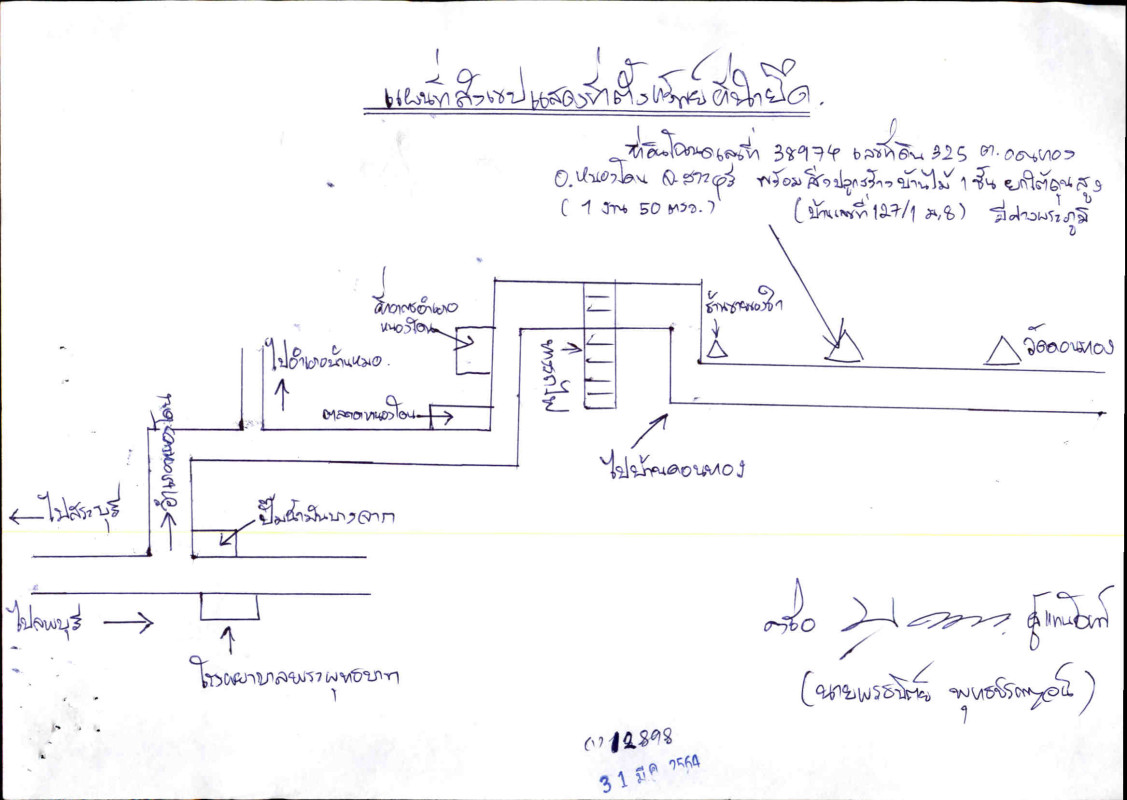 แผนที่สังเขปแสดงที่ตั้งทรัพย์ที่นำยึด.
ที่ดินโฉนดเลขที่ 38974 เลขที่ดิน 325 ต.ดอนทอง
อ.หนองโดน จ.สระบุรี พร้อมสิ่งปลูกสร้าง บ้านไม้ 1 ชั้น ยกใต้ถุนสูง
(1 งาน 50 ตรว.) (บ้านเลขที่ 127/1 ม.8) มีศาลพระภูมิ
ที่ว่าการอำเภอ
หนองโดน
ร้านขายของชำ
วัดดอนทอง
ไปอำเภอบ้านหมอ.
ทางรถไฟ
ตลาดหนองโดน
อำเภอหนองโดน
ไปบ้านดอนทอง
ไปสระบุรี
ปั๊มน้ำมันบางจาก
ไปลพบุรี
โรงพยาบาลพระพุทธบาท
ลงชื่อ ผู้แทนโจทก์
(นายพรธปิตย์
12898
31 มี.ค. 2564